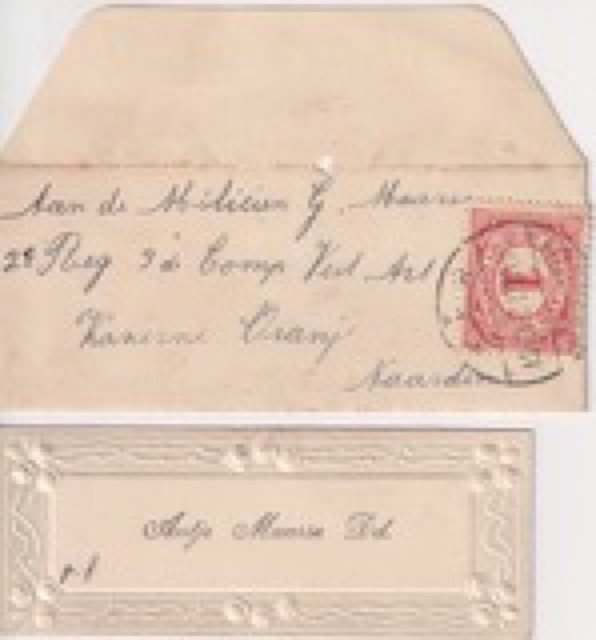 Aan de Milicien G. Maarse
2e Reg 3de Comp Vest Art
Kazerne Oranje
Naarden
1
Antje Maarse Dd.
p.f.